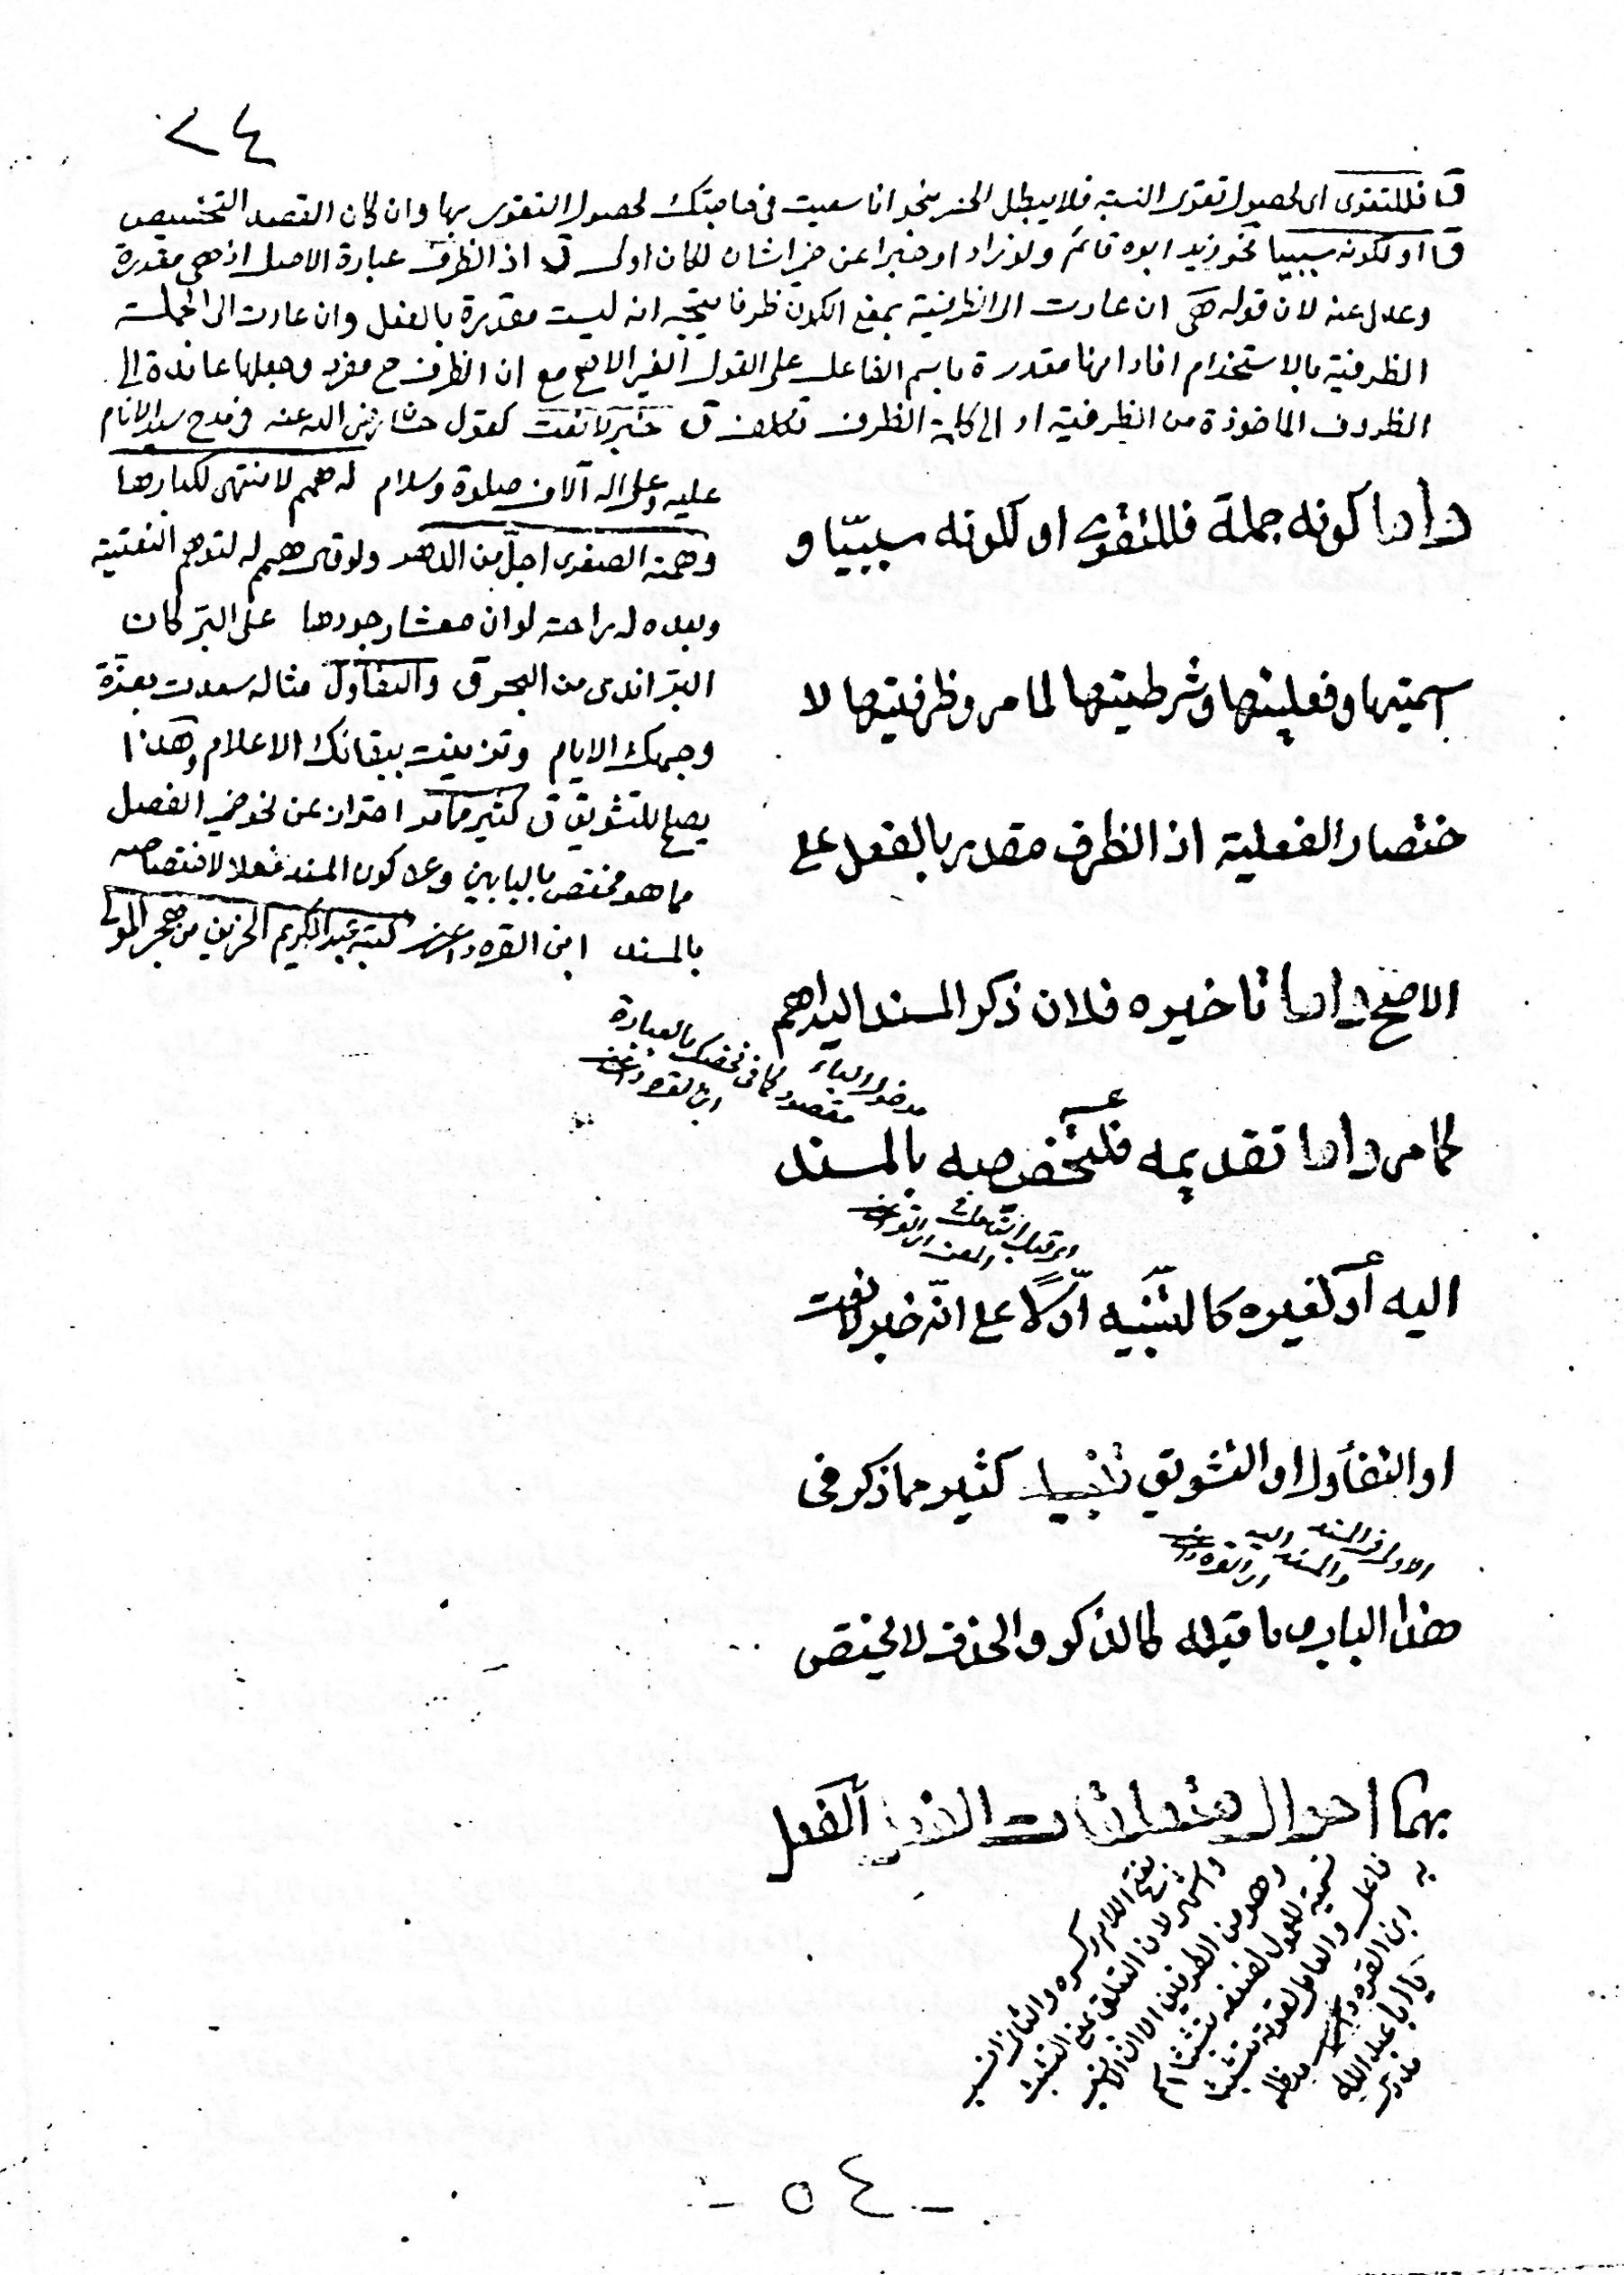 ٢٤
ق فللتقوى اى لحصول تقوى النسبة فلا يبطل الحصر بنحو انا سعيت فى حاجتك لحصول التقوى بها وان كان القصد التخصيص
ق او لكونه سببيا نحو زيد ابوه قائم ولو زاد او خبرا عن ضمير الشان لكان اولى ق اذ الظرف عبارة الاصل اذ هى مقدرة
وعدل عنه لان قوله هى ان عادت الى الظرفية بمعنى الكون ظرفا يتجه انه ليست مقدرة بالفعل وان عادت الى الجملة
الظرفية بالاستخدام افاد انها مقدرة باسم الفاعل على القول الغير الاصح مع ان الظرف ح مفرد وجعلها عائدة الى
الظروف الماخوذة من الظرفية او الى كلمة الظرف تكلف ق خبر لا نعت كقول حسان رضى الله عنه فى مدح سيد الانام
عليه وعلى اله آلاف صلوة وسلام له همم لا منتهى لكبارها
وهمته الصغرى اجلّ من الدهر ولو قال همم له لتوهم النعتية
وبعده له راحة لو ان معشار جودها على البر كان
البر اندى من البحر ق والتفاؤل مثاله سعدت بغرّة
وجهك الايام وتزينت ببقائك الاعلام وهذا
يصلح للتشويق ق كثير مما مر احتراز عن نحو ضمير الفصل
مما هو مختص بالبابين وعن كون المسند فعلا لاختصاصه
بالمسند ابن القره داغى كتبه عبد الكريم الحزين من هجر المولى
واما كونه جملة فللتقوى او لكونه سببيّا و
اسميتها وفعليتها وشرطيتها لما مر وظرفيتها لا
ختصار الفعلية اذ الظرف مقدر بالفعل على
الاصح واما تاخيره فلان ذكر المسند اليه اهم
مدخول الباء مقصور كما فى نخصك بالعبادة
ابن القره داغى
كما مر واما تقديمه فلتخصيصه بالمسند
اليه أو لغيره كالتنبيه اوّلاً على انّه خبر لا نعت
او التفأول او التشويق تنبيه كثير مما ذكر فى
الاولى فى المسند اليه والمسند ابن القره داغى
هذا الباب وما قبله كالذكر والحذف لا يختص
بهما احوال متعلقات الفعل الفعل
بفتح اللام وكسره والثانى انسب
واشهر لان التعلق بمعنى التشبث
وهو من الطرفين الا ان الاخير
تسمية المعمول لضعفه متشبثا اسم
فاعل والعامل لقوته متشبثا
به ابن القره داغى مد ظله
٥٤